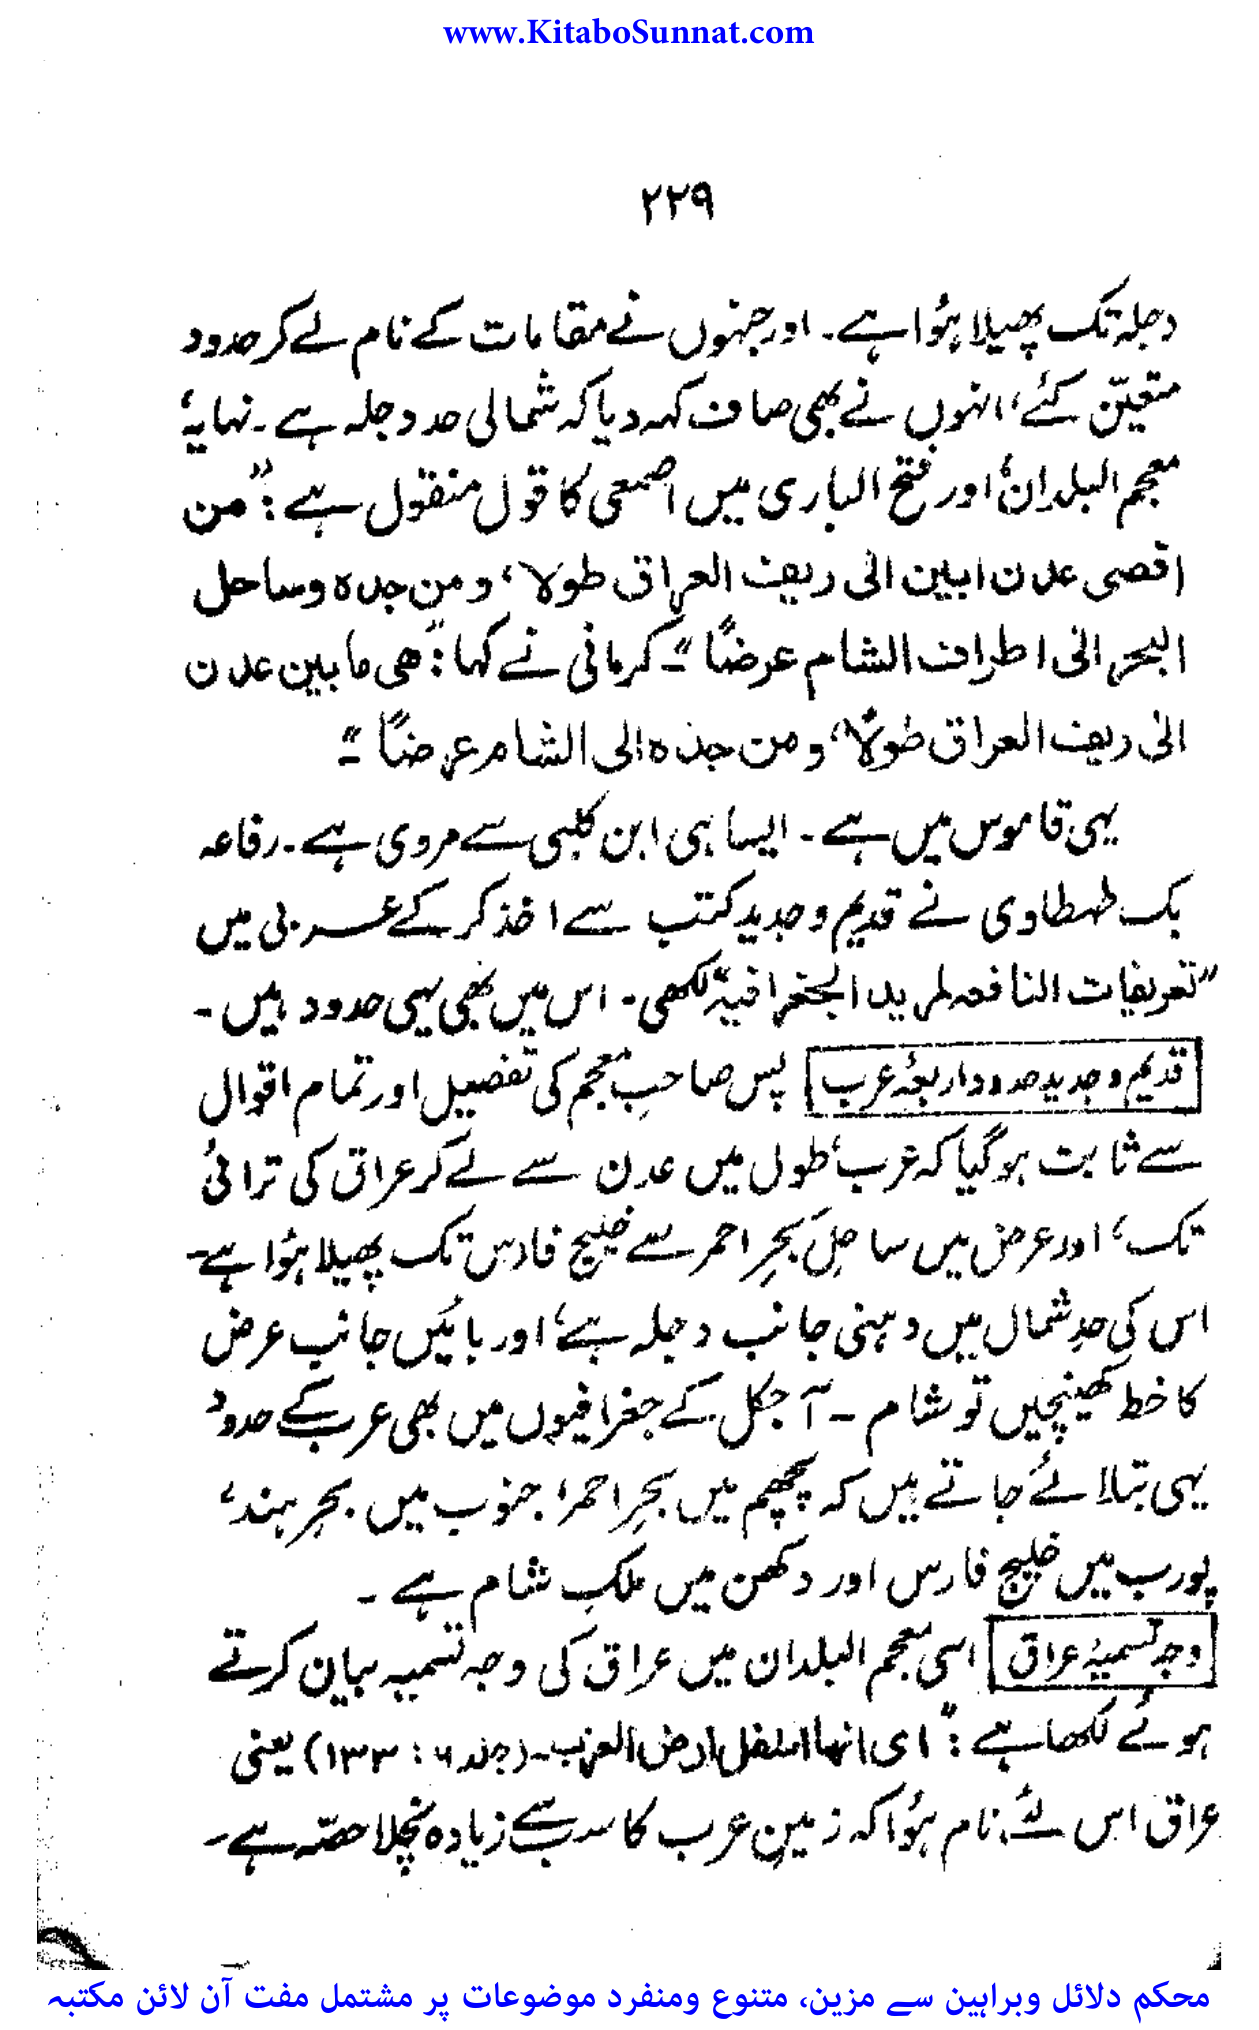 www.KitaboSunnat.com
۲۲۹
دجلہ تک پھیلا ہؤا ہے۔ اور جنہوں نے مقامات کے نام لے کر حدود
متعیّن کئے، انہوں نے بھی صاف کہہ دیا کہ شمالی حد دجلہ ہے۔ نہایہ،
معجم البلدان، اور فتح الباری میں اصمعی کا قول منقول ہے: "من
اقصی عدن ابین الی ریف العراق طولا، ومن جدہ وساحل
البحر الی اطراف الشام عرضًا"۔ کرمانی نے کہا: "ھی مابین عدن
الی ریف العراق طولًا، ومن جدہ الی الشام عرضًا"۔
یہی قاموس میں ہے۔ ایسا ہی ابن کلبی سے مروی ہے۔ رفاعہ
بک طہطاوی نے قدیم و جدید کتب سے اخذ کر کے عربی میں
"تعریفات النافعہ لمرید الجغرافیہ" لکھی۔ اس میں بھی یہی حدود ہیں۔
قدیم و جدید حدود اربعۂ عرب پس صاحبِ معجم کی تفصیل اور تمام اقوال
سے ثابت ہو گیا کہ عرب، طول میں عدن سے لے کر عراق کی ترائی
تک، اور عرض میں ساحلِ بحرِ احمر سے خلیج فارس تک پھیلا ہؤا ہے۔
اس کی حدِ شمال میں دہنی جانب دجلہ ہے، اور بائیں جانب عرض
کا خط کھینچیں تو شام۔ آجکل کے جغرافیوں میں بھی عرب کے حدود
یہی بتلائے جاتے ہیں کہ پچھم میں بحرِ احمر، جنوب میں بحرِ ہند،
پورب میں خلیج فارس اور دکھن میں ملکِ شام ہے۔
وجہ تسمیۂ عراق اسی معجم البلدان میں عراق کی وجہ تسمیہ بیان کرتے
ہوئے لکھا ہے: "ای انھا اسفل ارض العرب۔ (جلد ۶ : ۱۳۳) یعنی
عراق اس لئے نام ہؤا کہ زمینِ عرب کا سب سے زیادہ نچلا حصّہ ہے۔
محکم دلائل وبراہین سے مزین، متنوع ومنفرد موضوعات پر مشتمل مفت آن لائن مکتبہ